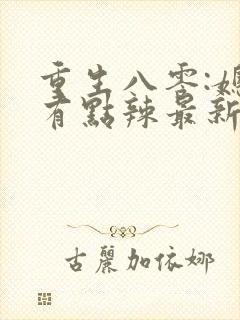 重生八零:媳
有點辣最新
古麗加依娜